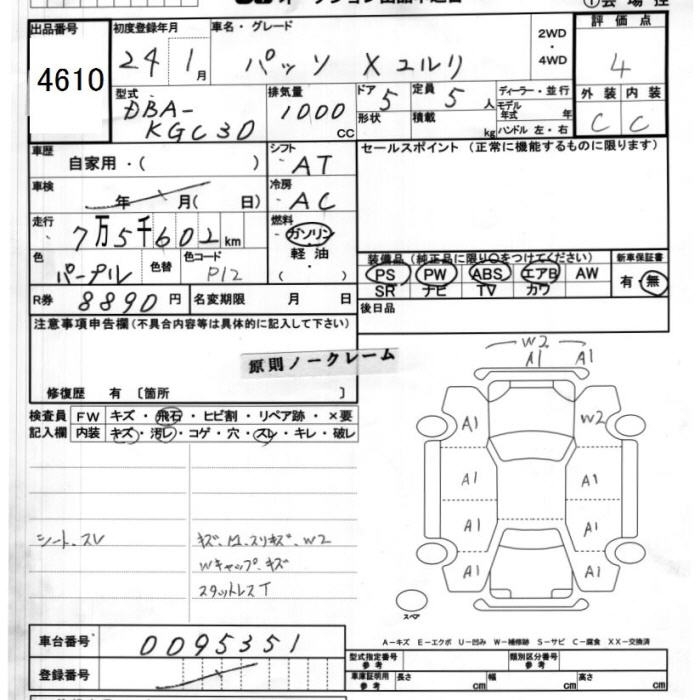 出品番号 初度登録年月 車名・グレード 2WD ・ 4WD 評価点
4610 24 1月 パッソ Xユルリ 4
型式 DBA-KGC30 排気量 1000 CC ドア 5 定員 5 人 ディーラー・並行 外装 内装
形状 積載 kg モデル年式 年 ハンドル 左・右 C C
車歴 自家用・( ) シフト ・AT セールスポイント (正常に機能するものに限ります)
車検 年 月( 日) 冷房 ・AC
走行 7万5千602km 燃料 ・ガソリン 軽油 ・( )
色 パープル 色替 色コード P12 装備品 (純正品に限り○をつけてください) 新車保証書
PS PW ABS エアB AW 有・無
SR ナビ TV カワ
R券 8890円 名変期限 月 日 後日品
注意事項申告欄 (不具合内容等は具体的に記入して下さい)
原則ノークレーム
修復歴 有 〔箇所 〕
検査員 FW キズ・飛石・ヒビ割・リペア跡・×要
記入欄 内装 キズ・汚レ・コゲ・穴・スレ・キレ・破レ
W2
A1 A1
A1 W2
A1 A1
A1 A1
A1 A1
シート、スレ キズ、M、スリキズ、W2
Wキャップ、キズ
スタットレスT
スペア
車台番号 0095351
A-キズ E-エクボ U-凹み W-補修跡 S-サビ C-腐食 XX-交換済
登録番号 型式指定番号 参考 類別区分番号 参考
車庫証明用 参考 長さ cm 幅 cm 高さ cm